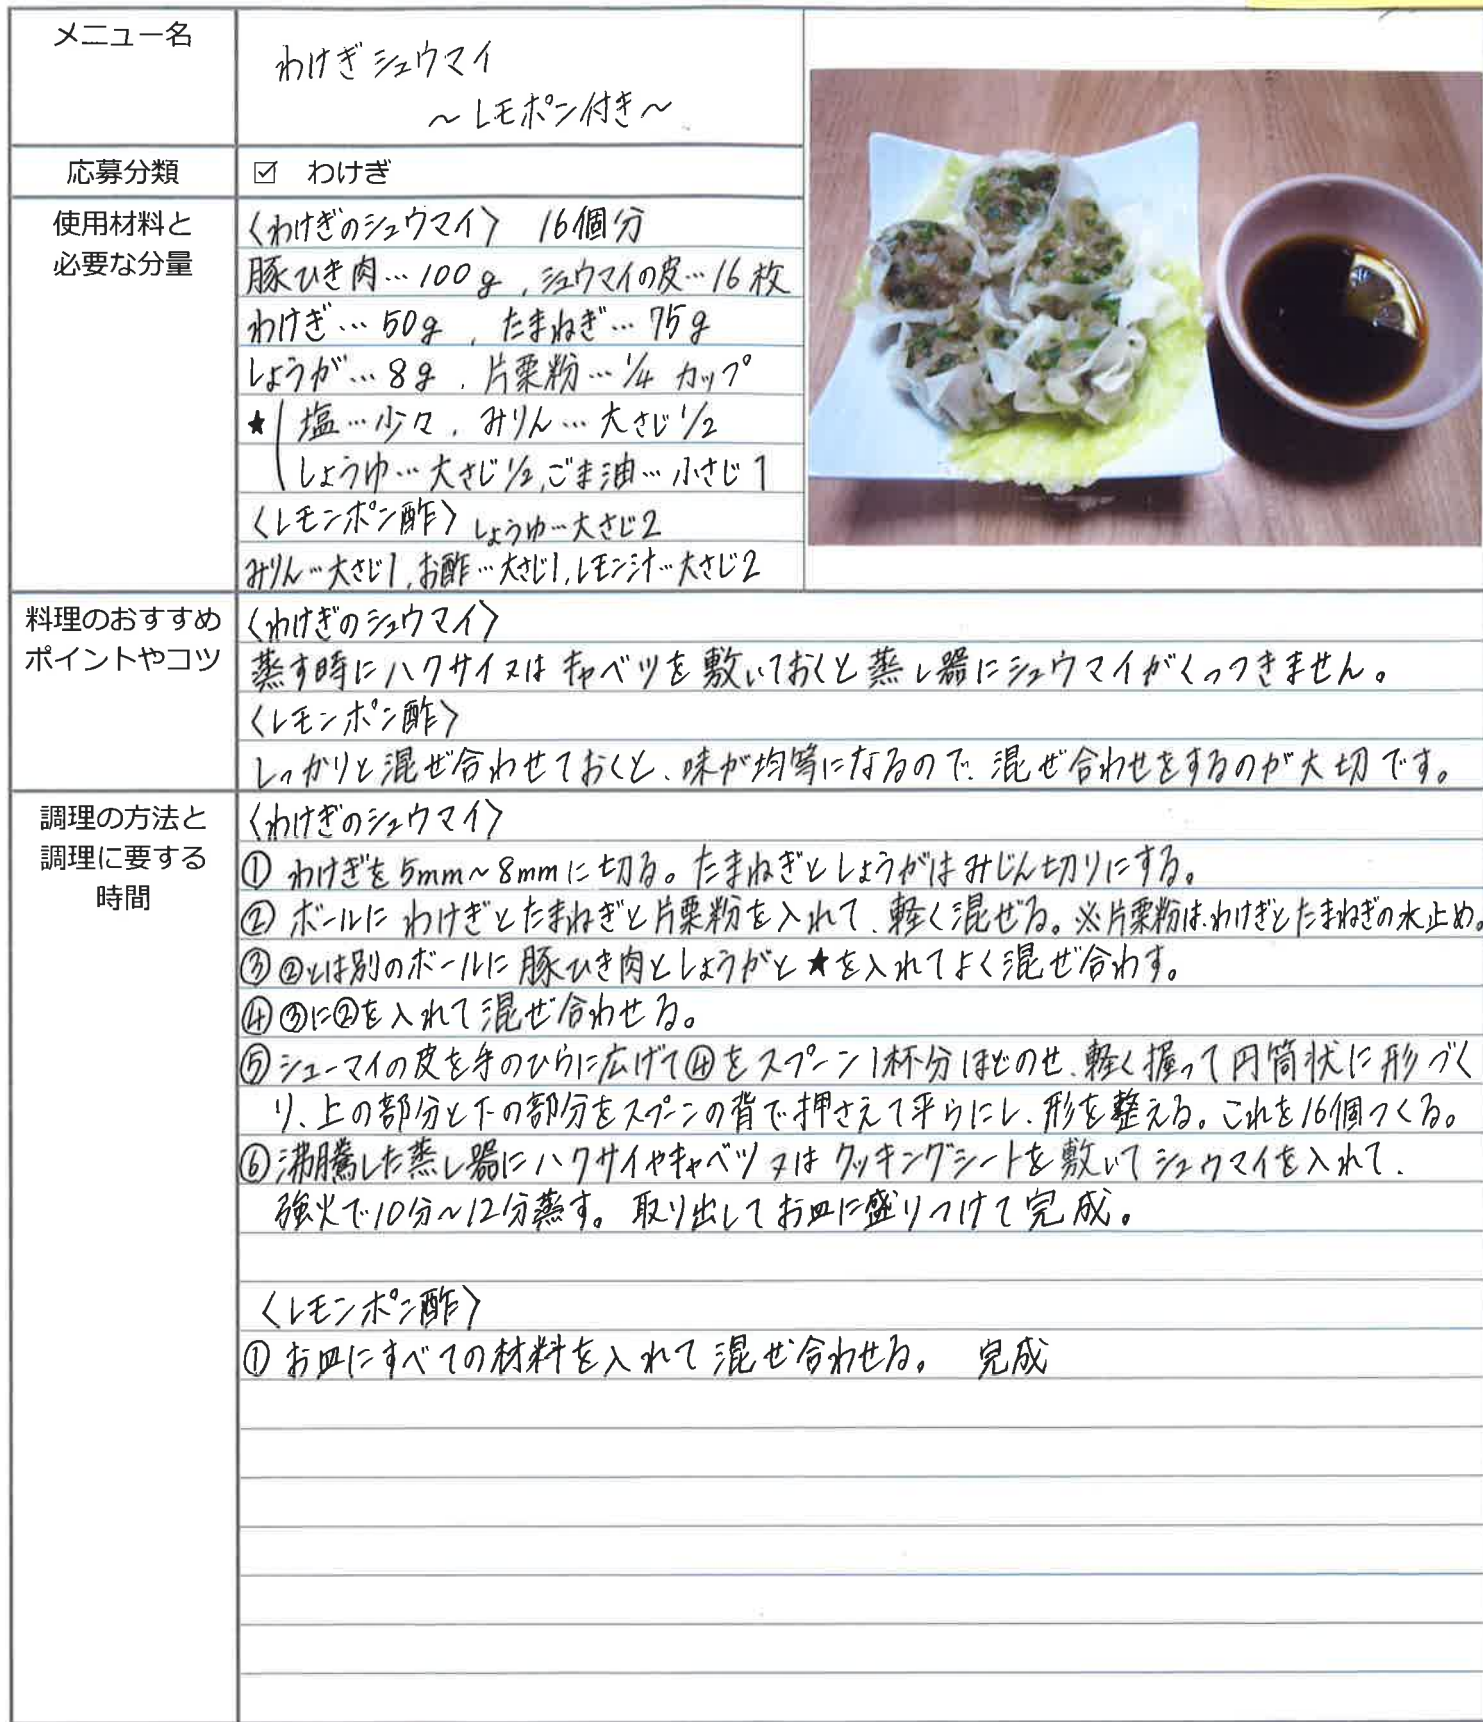 メニュー名
わけぎシュウマイ
～レモポン付き～
応募分類
☑ わけぎ
使用材料と
必要な分量
〈わけぎのシュウマイ〉 16個分
豚ひき肉…100g、シュウマイの皮…16枚
わけぎ…50g、たまねぎ…75g
しょうが…8g、片栗粉…1/4カップ
★ 塩…少々、みりん…大さじ1/2
しょうゆ…大さじ1/2、ごま油…小さじ1
〈レモンポン酢〉しょうゆ…大さじ2
みりん…大さじ1、お酢…大さじ1、レモン汁…大さじ2
料理のおすすめ
ポイントやコツ
〈わけぎのシュウマイ〉
蒸す時にハクサイ又はキャベツを敷いておくと蒸し器にシュウマイがくっつきません。
〈レモンポン酢〉
しっかりと混ぜ合わせておくと、味が均等になるので、混ぜ合わせをするのが大切です。
調理の方法と
調理に要する
時間
〈わけぎのシュウマイ〉
① わけぎを5mm～8mmに切る。たまねぎとしょうがはみじん切りにする。
② ボールにわけぎとたまねぎと片栗粉を入れて、軽く混ぜる。※片栗粉は、わけぎとたまねぎの水止め。
③ ②とは別のボールに豚ひき肉としょうがと★を入れてよく混ぜ合わす。
④ ③に②を入れて混ぜ合わせる。
⑤ シューマイの皮を手のひらに広げて④をスプーン1杯分ほどのせ、軽く握って円筒状に形づく
り、上の部分と下の部分をスプーンの背で押さえて平らにし、形を整える。これを16個つくる。
⑥ 沸騰した蒸し器にハクサイやキャベツ又はクッキングシートを敷いてシュウマイを入れて、
強火で10分～12分蒸す。取り出してお皿に盛りつけて完成。
〈レモンポン酢〉
① お皿にすべての材料を入れて混ぜ合わせる。 完成